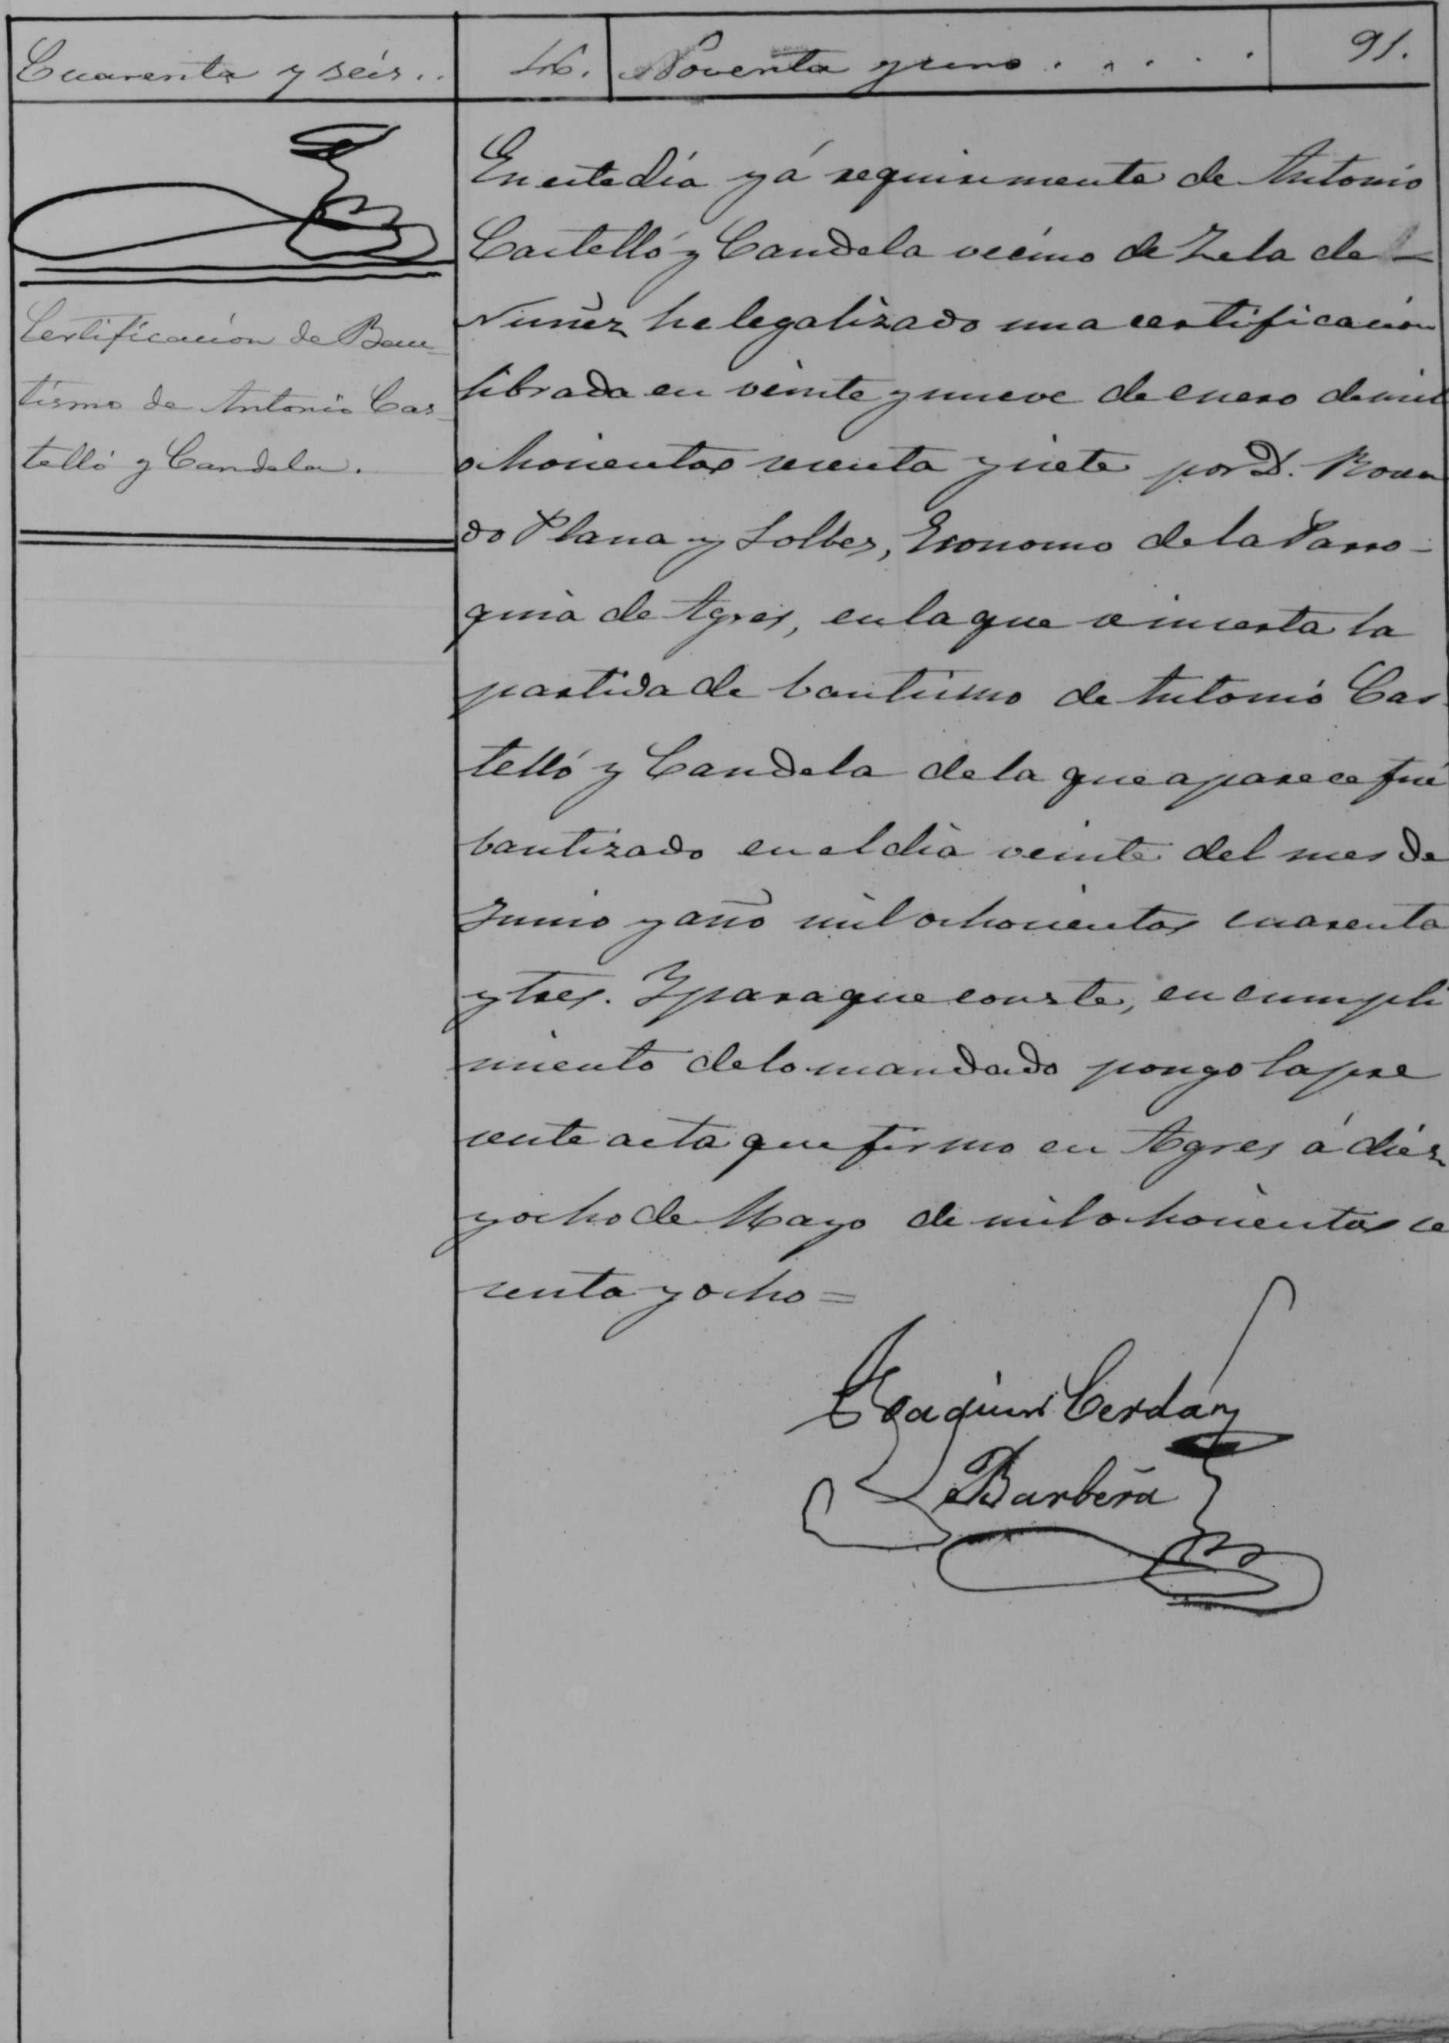 Cuarenta y seis.. 46. Noventa y uno . . . . . 91.
Certificacion de Bau-
tismo de Antonio Cas-
telló y Candela.
En este dia y á requirimento de Antonio
Castelló y Candela vecino de Zela de
Nuñez he legalizado una certificacion
librada en veinte y nueve de enero de mil
ochocientos sesenta y siete por D.
do Plana y Solbes, Economo de la Parro-
quia de Agres, en la que se inserta la
partida de bautismo de Antonio Cas-
telló y Candela de la que aparece fué
bautizado en el dia veinte del mes de
Junio y año mil ochocientos cuarenta
y tres. Y para que conste, en cumpli
miento de lo mandado pongo la pre
sente acta que firmo en Agres á diez
y ocho de Mayo de mil ochocientos se
senta y ocho =
Joaquin Cerdán
Barberá